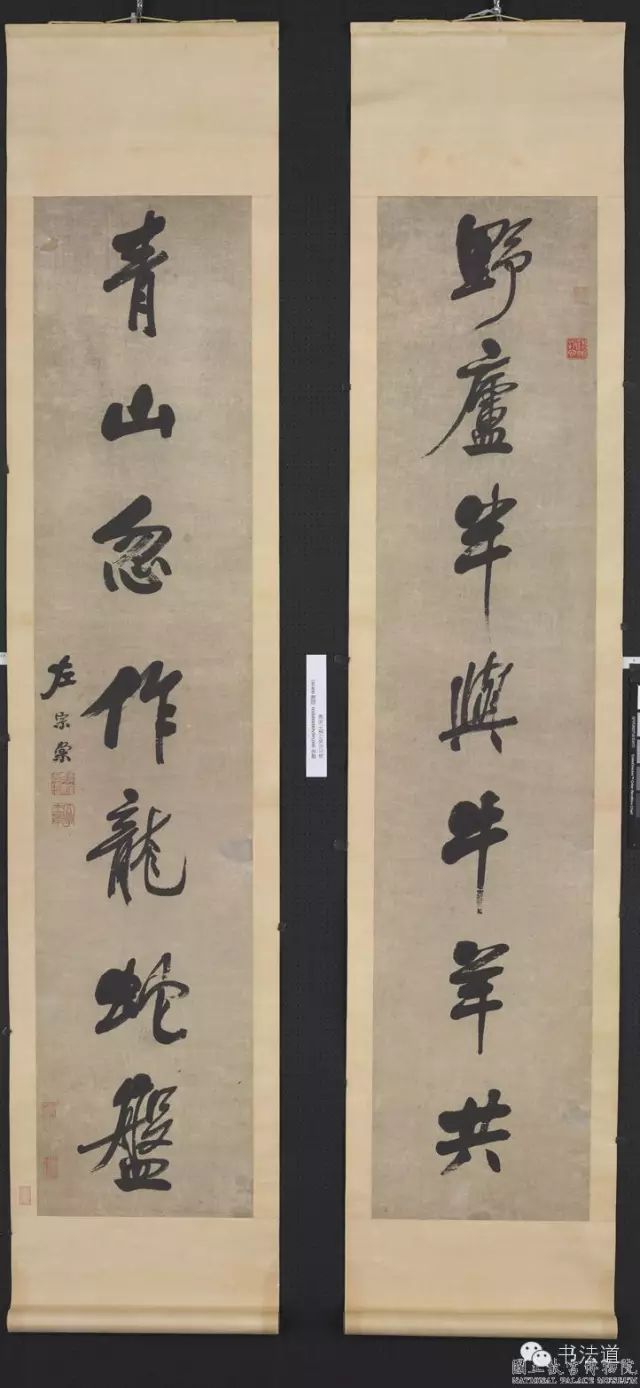 野廬半與牛羊共
青山忽作龍蛇盤
左宗棠
书法道
國立故宮博物院
NATIONAL PALACE MUSEUM